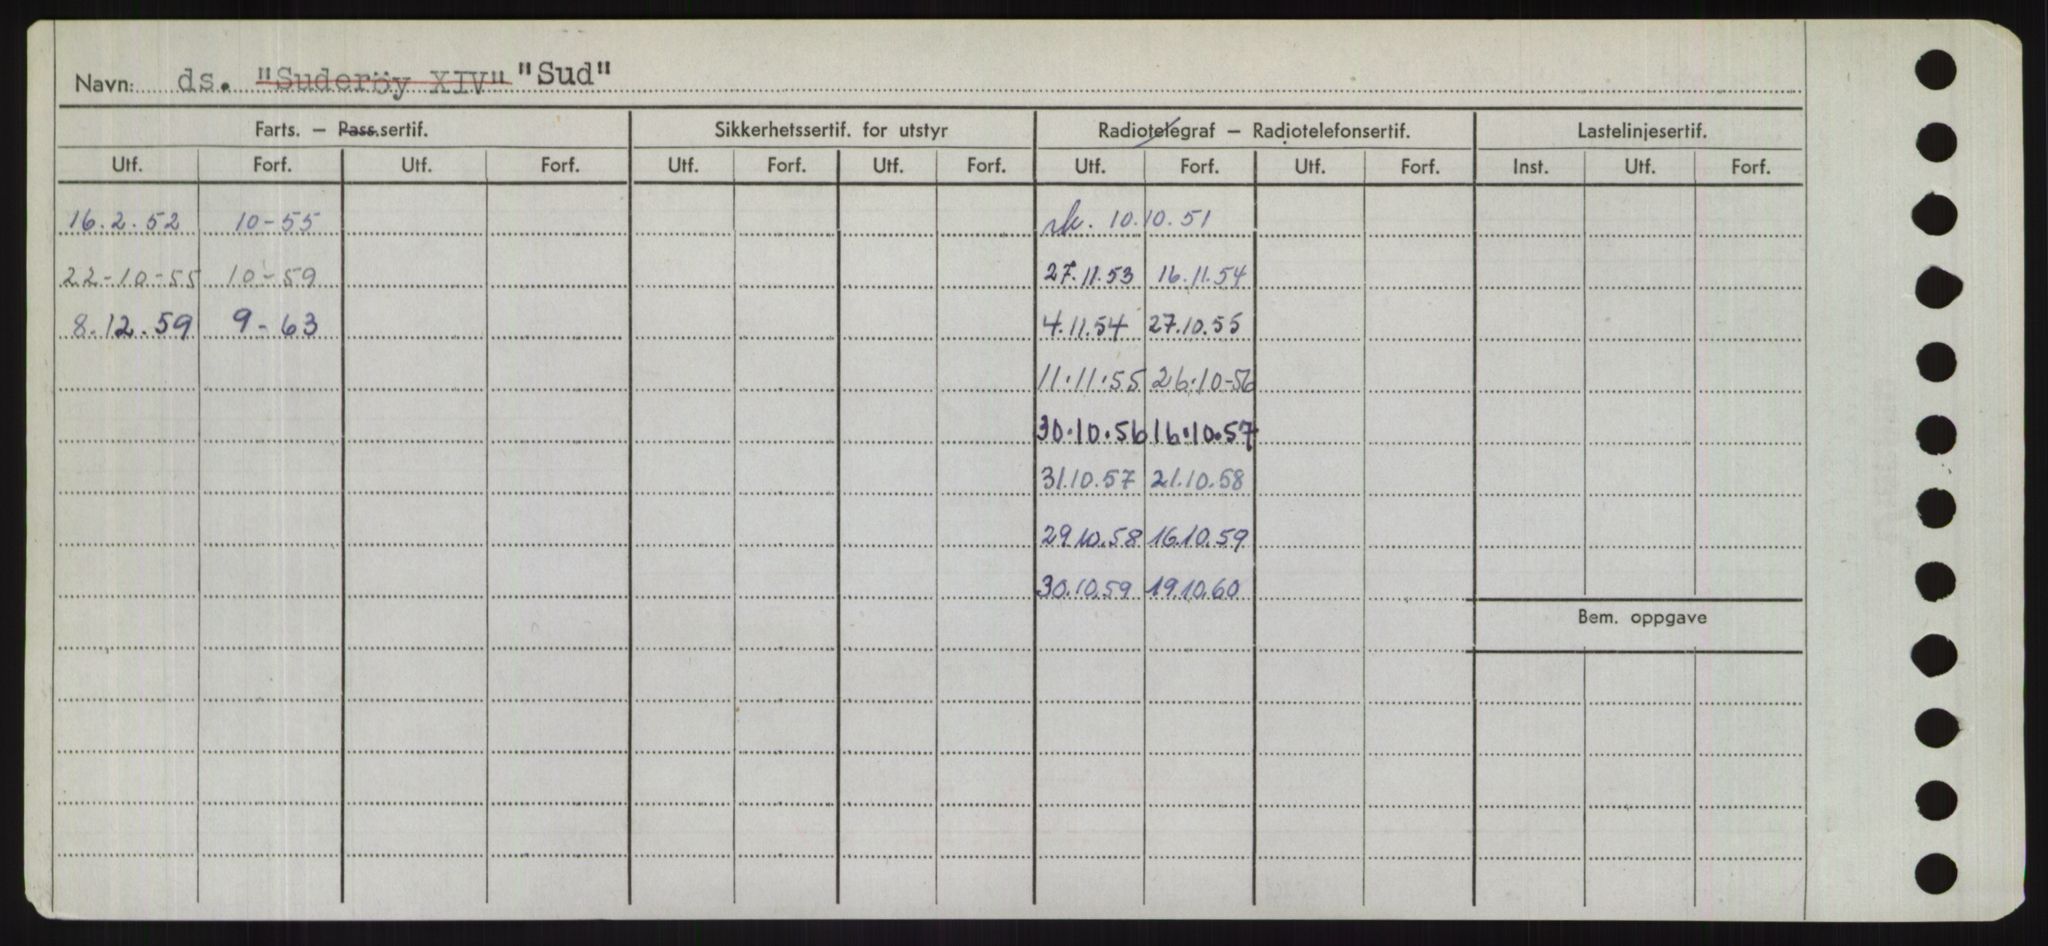 Navn: ds. "Suderöy XIV" "Sud"
Farts. – Pass.sertif. Sikkerhetssertif. for utstyr Radiotelegraf – Radiotelefonsertif. Lastelinjesertif.
Utf. Forf. Utf. Forf. Utf. Forf. Utf. Forf. Utf. Forf. Utf. Forf. Inst. Utf. Forf.
16.2.52 10-55 10.10.51
22-10-55 10-59 27.11.53 16.11.54
8.12.59 9-63 4.11.54 27.10.55
11.11.55 26.10-56
30.10.56 16.10.57
31.10.57 21.10.58
29.10.58 16.10.59
30.10.59 19.10.60
Bem. oppgave